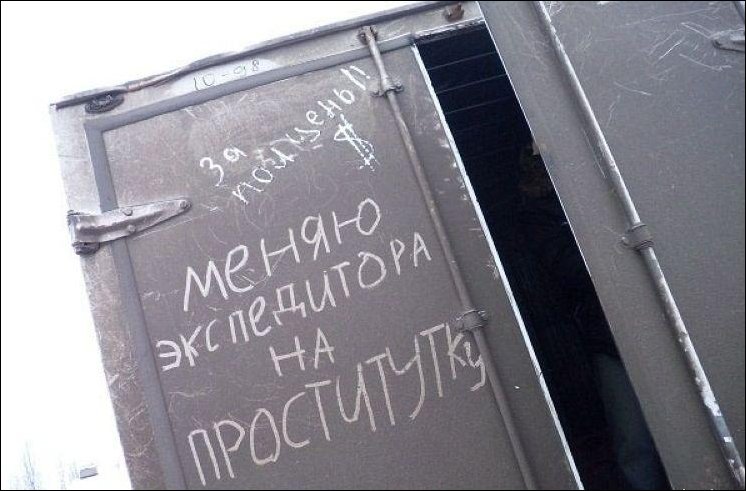 10-98
За
пол цены!!
$
МЕНЯЮ
ЭКСПЕДИТОРА
НА
ПРОСТИТУТКУ